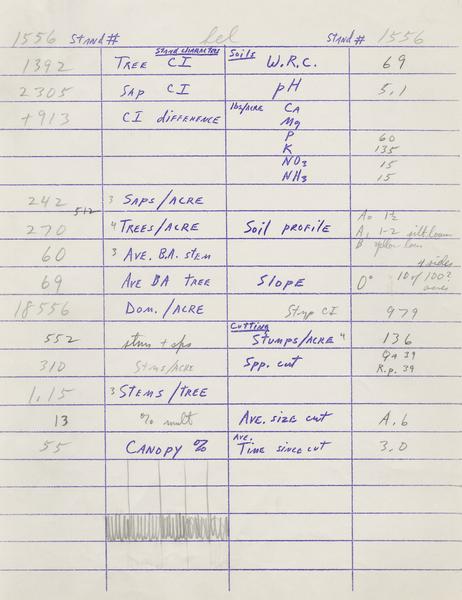 1556 STAND# Sel STAND# 1556
STAND CHARACTERS Soils
1392 TREE CI W.R.C. 69
2305 SAP CI pH 5.1
+913 CI difference lbs/acre CA
Mg
P 60
K 135
NO3 15
NH3 15
242 3 SAPS/ACRE
512
270 4 TREES/ACRE Soil profile A0 1½
A1 1-2 silt loam
B yellow loam
60 3 AVE. B.A. STEM
69 AVE BA TREE SLOPE 0° 4 sides
10 of 100?
acres
18556 DOM./ACRE Stmp CI 979
Cutting
552 stms + sps STUMPS/ACRE 4 136
310 Stms/ACRE Spp. cut Qa 39
R.p. 39
1.15 3 STEMS/TREE
13 % mult AVE. SIZE CUT A.6
55 CANOPY % AVE. TIME SINCE CUT 3.0